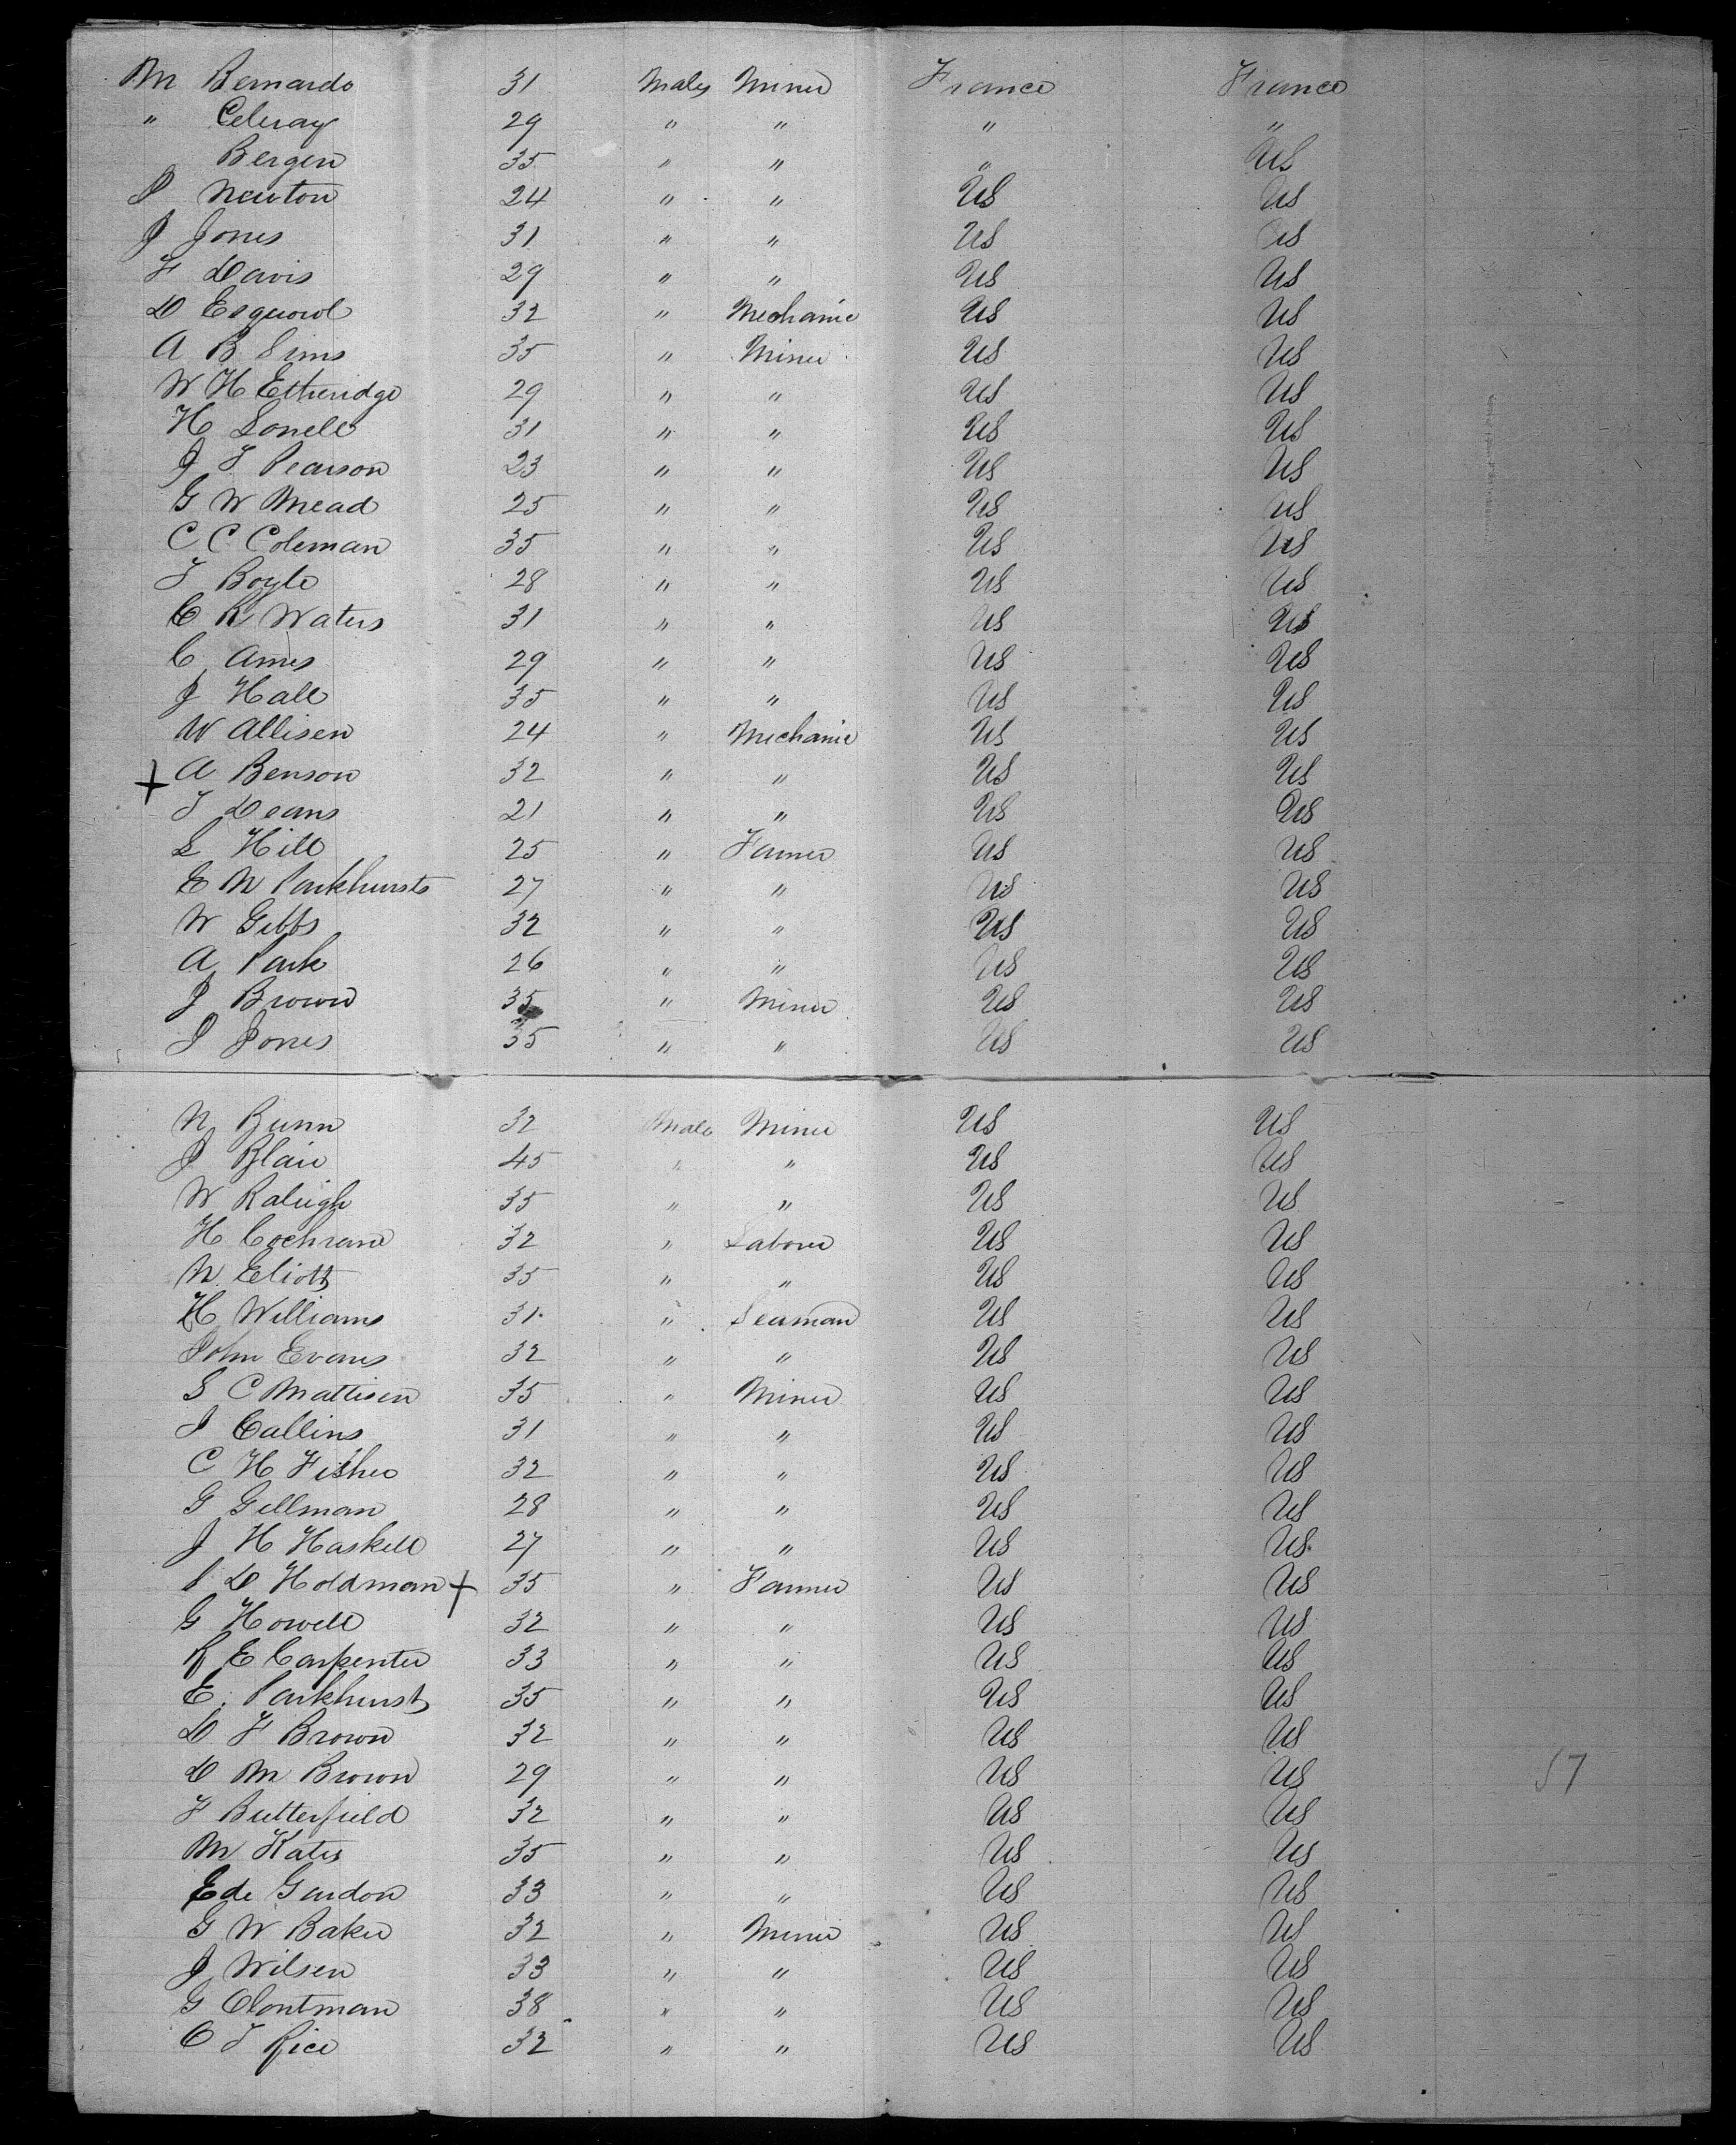 M Bernardo 31 Males Miner France France
" Celeray 29 " " " "
Bergen 35 " " " US
P Newton 24 " " US US
J Jones 31 " " US US
F Davis 29 " " US US
D Esquirol 32 " Mechanic US US
A B Sims 35 " Miner US US
W H Etheridge 29 " " US US
H Sonell 31 " " US US
J T Pearson 23 " " US US
G W Mead 25 " " US US
C C Coleman 35 " " US US
T Boyle 28 " " US US
C R Waters 31 " " US US
C Ames 29 " " US US
J Hall 35 " " US US
W Allisen 24 " Mechanic US US
+ A Benson 32 " " US US
T Deans 21 " " US US
L Hill 25 " Farmer US US
E W Parkhursts 27 " " US US
W Gibbs 32 " " US US
A Park 26 " " US US
J Brown 35 " Miner US US
J Jones 35 " " US US
N Bunn 32 Male Miner US US
J Blair 45 " " US US
W Raleigh 35 " " US US
H Cochrane 32 " Laborer US US
N Eliott 35 " " US US
H Williams 31 " Seaman US US
John Evans 32 " " US US
S C Mattisen 35 " Miner US US
J Callins 31 " " US US
C H Fisher 32 " " US US
G Gellman 28 " " US US
J H Haskell 27 " " US US
S D Holdman + 35 " Farmer US US
G Howell 32 " " US US
R E Carpenter 33 " " US US
E. Parkhurst 35 " " US US
D F Brown 32 " " US US
D M Brown 29 " " US US 57
F Butterfield 32 " " US US
M Kates 35 " " US US
E de Gardon 33 " " US US
G W Baker 32 " Miner US US
J Wilsen 33 " " US US
G Clontman 38 " " US US
C T Rice 32 " " US US